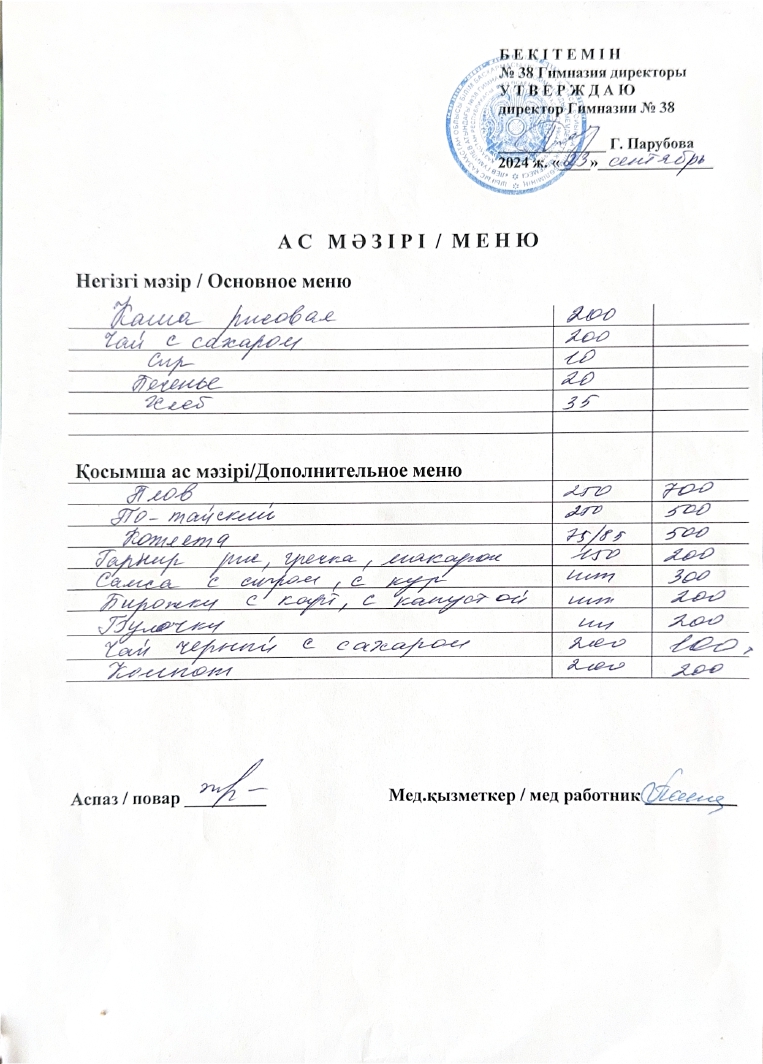 БЕКІТЕМІН
№ 38 Гимназия директоры
УТВЕРЖДАЮ
директор Гимназии № 38
Г. Парубова
2024 ж. «23» сентябрь
АС МӘЗІРІ / МЕНЮ
Негізгі мәзір / Основное меню
Каша рисовая 200
Чай с сахаром 200
Сыр 10
Печенье 20
Хлеб 35
Қосымша ас мәзірі/Дополнительное меню
Плов 250 700
По-тайский 250 500
Котлета 75/85 500
Гарнир рис, гречка, макарон 150 200
Самса с сыром, с кур шт 300
Пирожки с карт, с капустой шт 200
Булочки шт 200
Чай черный с сахаром 200 100.
Компот 200 200
Аспаз / повар
Мед.қызметкер / мед работник